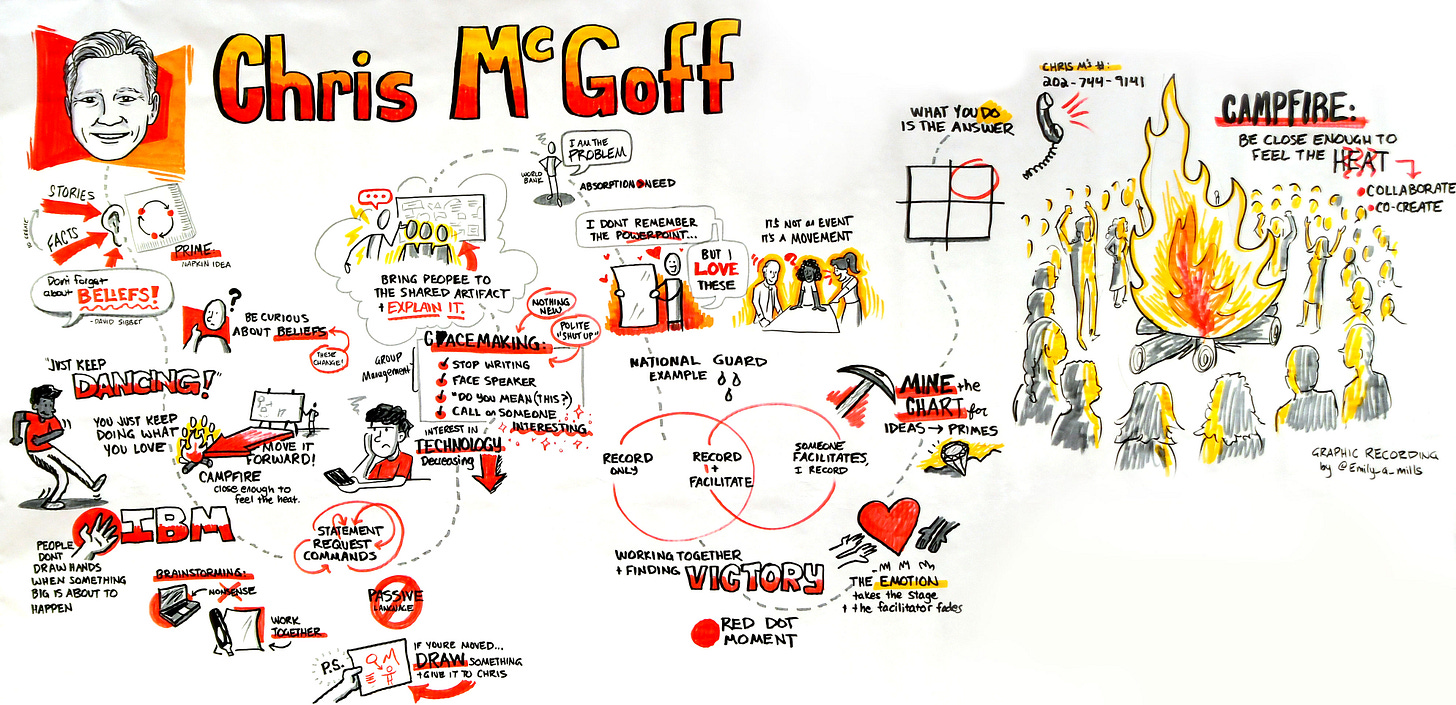 Chris McGoff
STORIES
FACTS
PRIME
NAPKIN IDEA
Don't forget
about BELIEFS!
- DAVID SIBBET
?
BE CURIOUS
ABOUT BELIEFS
THESE
CHANGE!
"JUST KEEP
DANCING!"
YOU JUST KEEP
DOING WHAT
YOU LOVE
MOVE IT
FORWARD!
CAMPFIRE
close enough to
feel the heat.
IBM
PEOPLE
DONT
DRAW HANDS
WHEN SOMETHING
BIG IS ABOUT TO
HAPPEN
BRAINSTORMING:
NONSENSE
WORK
TOGETHER
STATEMENT
REQUEST
COMMANDS
PASSIVE
LANGUAGE
P.S.
IF YOU'RE MOVED...
DRAW SOMETHING
+ GIVE IT TO CHRIS
I AM THE
PROBLEM
WORLD
BANK
ABSORPTION NEED
BRING PEOPEE TO
THE SHARED ARTIFACT
+ EXPLAIN IT.
NOTHING
NEW
POLITE
"SHUT UP"
GROUP
Management
PACEMAKING:
STOP WRITING
FACE SPEAKER
"DO YOU MEAN (THIS?)
CALL on SOMEONE
INTERESTING
INTEREST IN
TECHNOLOGY
Decreasing
I DONT REMEMBER
THE POWERPOINT...
BUT I
LOVE
THESE
IT'S NOT an EVENT
IT'S A MOVEMENT
?
NATIONAL GUARD
EXAMPLE
RECORD
ONLY
RECORD
+
FACILITATE
SOMEONE
FACILITATES,
I RECORD
WORKING TOGETHER
+ FINDING VICTORY
RED DOT
MOMENT
WHAT YOU DO
IS THE ANSWER
MINE the
CHART for
IDEAS → PRIMES
THE EMOTION
takes the stage
+ the facilitator fades
CHRIS M's #:
202-744-9141
CAMPFIRE:
BE CLOSE ENOUGH TO
FEEL THE HEAT
COLLABORATE
CO-CREATE
GRAPHIC RECORDING
by @Emily_a_mills